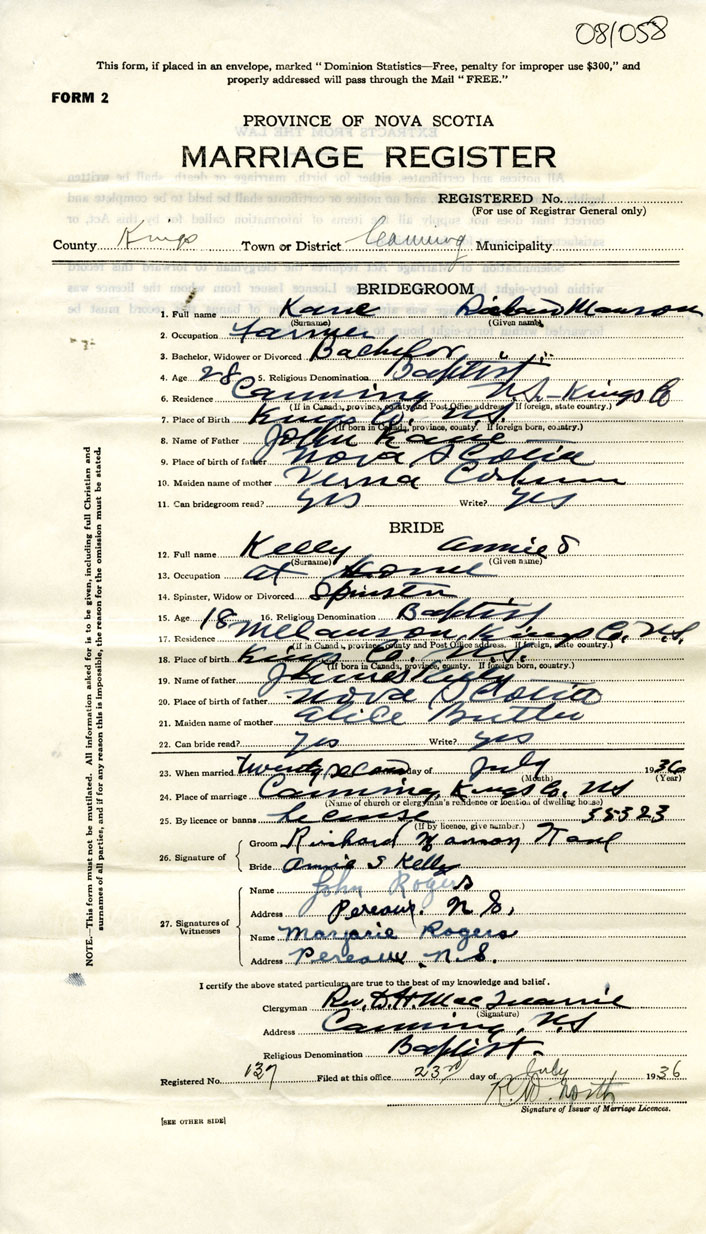 08/058
This form, if placed in an envelope, marked "Dominion Statistics—Free, penalty for improper use $300," and
properly addressed will pass through the Mail "FREE."
FORM 2
PROVINCE OF NOVA SCOTIA
MARRIAGE REGISTER
REGISTERED No.
(For use of Registrar General only)
County Kings Town or District Canning Municipality
BRIDEGROOM
1. Full name Kane Manson
(Surname) (Given name)
2. Occupation Farmer
3. Bachelor, Widower or Divorced Bachelor
4. Age 28 5. Religious Denomination Baptist
6. Residence Canning N.S. - Kings Co
(If in Canada, province, county and Post Office address. If foreign, state country.)
7. Place of Birth Kings Co. N.S.
(If born in Canada, province, county. If foreign born, country.)
8. Name of Father John Kane
9. Place of birth of father Nova Scotia
10. Maiden name of mother Verna
11. Can bridegroom read? yes Write? yes
BRIDE
12. Full name Kelly Annie S
(Surname) (Given name)
13. Occupation at Home
14. Spinster, Widow or Divorced Spinster
15. Age 18 16. Religious Denomination Baptist
17. Residence Melanson, Kings Co. N.S.
(If in Canada, province, county and Post Office address. If foreign, state country.)
18. Place of birth Kings Co. N.S.
(If born in Canada, province, county. If foreign born, country.)
19. Name of father Kelly
20. Place of birth of father Nova Scotia
21. Maiden name of mother Alice Butler
22. Can bride read? yes Write? yes
23. When married Twenty second day of July 1936
(Month) (Year)
24. Place of marriage Canning, Kings Co. N.S
(Name of church or clergyman's residence or location of dwelling house)
25. By licence or banns license 35323
(If by licence, give number.)
26. Signature of
Groom Richard Manson Kane
Bride Annie S Kelly
27. Signatures of Witnesses
Name John Rogers
Address Pereaux. N.S.
Name Marjorie Rogers
Address Pereaux. N.S.
I certify the above stated particulars are true to the best of my knowledge and belief.
Clergyman Rev. D. H. MacQuarrie
(Signature)
Address Canning, N.S
Religious Denomination Baptist.
Registered No. 137 Filed at this office 23rd day of July 1936
R. W. North
Signature of Issuer of Marriage Licences.
[SEE OTHER SIDE]
NOTE.—This form must not be mutilated. All information asked for is to be given, including full Christian and
surnames of all parties, and if for any reason this is impossible, the reason for the omission must be stated.